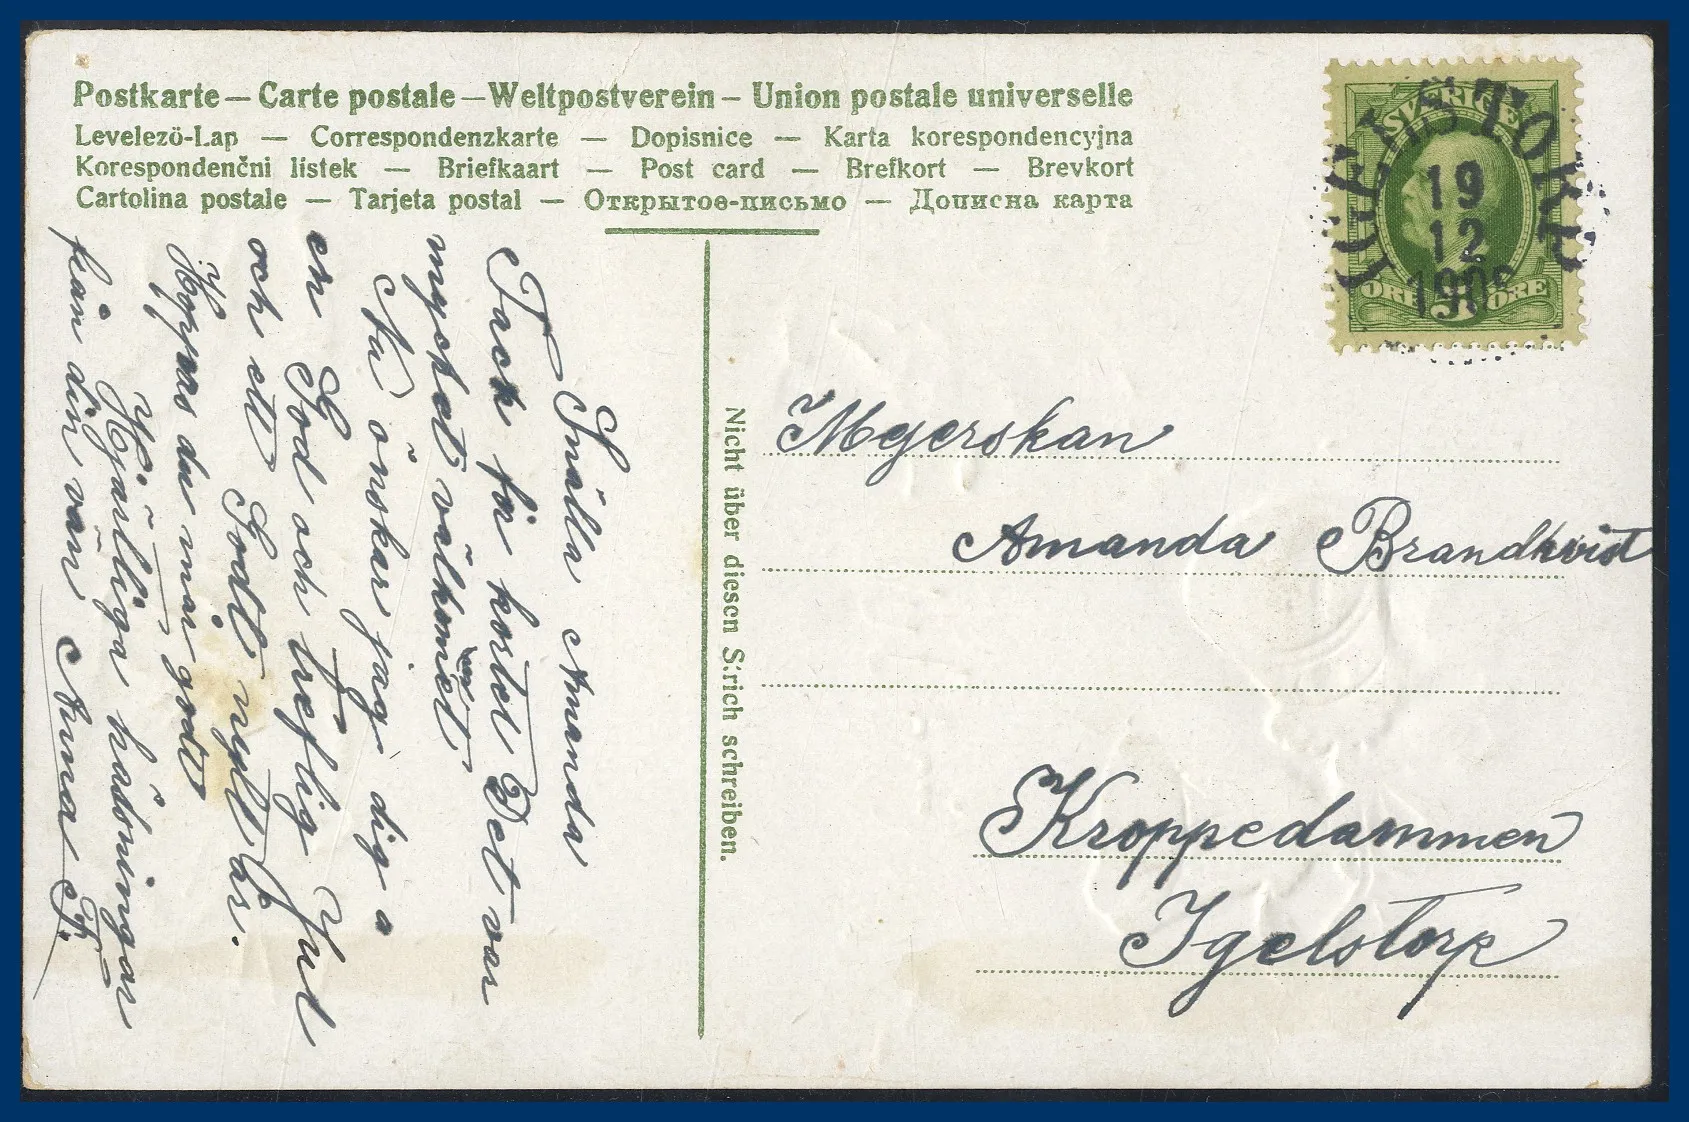 Postkarte — Carte postale — Weltpostverein — Union postale universelle
Levelezö-Lap — Correspondenzkarte — Dopisnice — Karta korespondencyjna
Korespondenčni listek — Briefkaart — Post card — Brefkort — Brevkort
Cartolina postale — Tarjeta postal — Открытое-письмо — Дописна карта
SVERIGE
5
ÖRE ÖRE
19
12
Snälla Amanda
Tack för kortet Det var
mycket välkomet
Nu önskar jag dig a
en God och treflig Jul
och ett Godt nytt år.
Hoppas du mår godt
Hjärtliga hälsningar
från din vän Anna F.
Nicht über diesen Strich schreiben.
Mejerskan
Amanda Brandkvist
Kroppedammen
Igelstorp